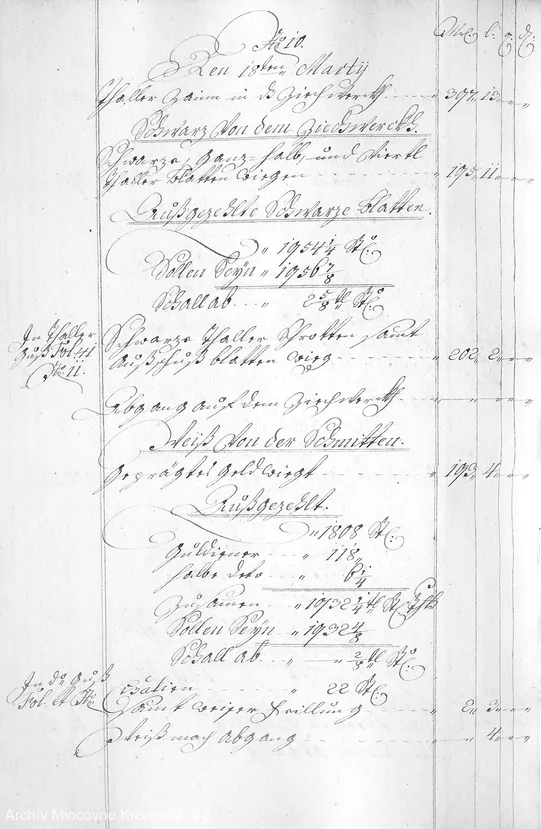 Mk l: q: d:
No 10.
Den 18ten Martij
Thaller Zainn in ds Ziechwerckh " 397 " 13 " "
Schwarz von dem Ziechwerckh.
Schwarze, Ganz, halb, und Viertl
Thaller blatten wiegen " 195 " 11 " "
Außgezehlte Schwarze blatten.
" 1954 1/4 St:
Sollen Seyn " 1956 7/8
Schall ab " 2 5/8 tl St:
In Thaller
Guß Fol: 41
No: 11.
Schwarze Thaller Schrotten samt
Außschuß blatten wieg " 202 " 2 " "
Abgang auf dem Ziechwerckh " " " "
Weiß von der Schmitten.
Geprägtes Geld wiegt " 193 " 4 " "
Außgezehlt.
" 1808 St:
Guldiener " 118 "
halbe deto " 6 1/4
Zusamen " 1932 1/4 tl St:
Sollen Seyn " 1932 4/8
Schall ab " " 2/8 tl St:
In ds Guß
Fol: et No
Cisalien " 22 St:
Samt weiser " 2 " 3 " "
Weiß mach abgang " " 4 " "
Archiv Mincovne Kremnica